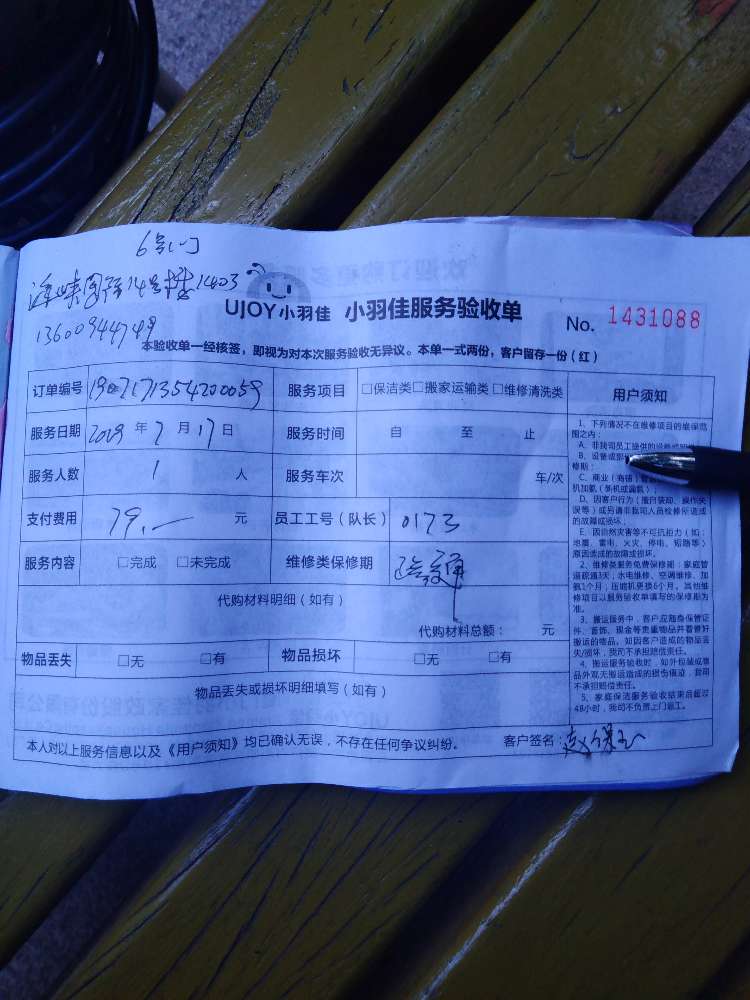 6号门
14号楼1403
13600944749
UJOY小羽佳 小羽佳服务验收单 No. 1431088
本验收单一经核签，即视为对本次服务验收无异议。本单一式两份，客户留存一份（红）
订单编号 服务项目 □保洁类□搬家运输类□维修清洗类 用户须知
服务日期 2019 年 7 月 17 日 服务时间 自 至 止
服务人数 1 人 服务车次 车/次
支付费用 79.— 元 员工工号（队长） 0173
服务内容 □完成 □未完成 维修类保修期 疏通
代购材料明细（如有）
代购材料总额： 元
物品丢失 □无 □有 物品损坏 □无 □有
物品丢失或损坏明细填写（如有）
本人对以上服务信息以及《用户须知》均已确认无误，不存在任何争议纠纷。 客户签名：
1、下列情况不在维修项目的维保范
围之内：
A、非我司员工提供的设备或
B、设备或部
修期；
C、商业（商铺）
机加氟（新机或漏氟）；
D、因客户行为（擅自装卸、操作失
误等）或另请非我司人员检修所造成
的故障或损坏；
E、因自然灾害等不可抗拒力（如：
地震、雷电、火灾、停电、短路等）
原因造成的故障或损坏。
2、维修类服务免费保修期：家庭管
道疏通3天；水电维修、空调维修、加
氟1个月；压缩机更换6个月，其他维
修项目以服务验收单填写的保修期为
准。
3、搬运服务中，客户应随身保管证
件、首饰、现金等贵重物品并看管好
搬运的物品。如因客户造成的物品丢
失/损坏，我司不承担赔偿责任。
4、搬运服务验收时，如外包装或物
品外观无搬运造成的损伤痕迹，我司
不承担赔偿责任。
5、家庭保洁服务验收结束后超过
48小时，我司不负责上门返工。